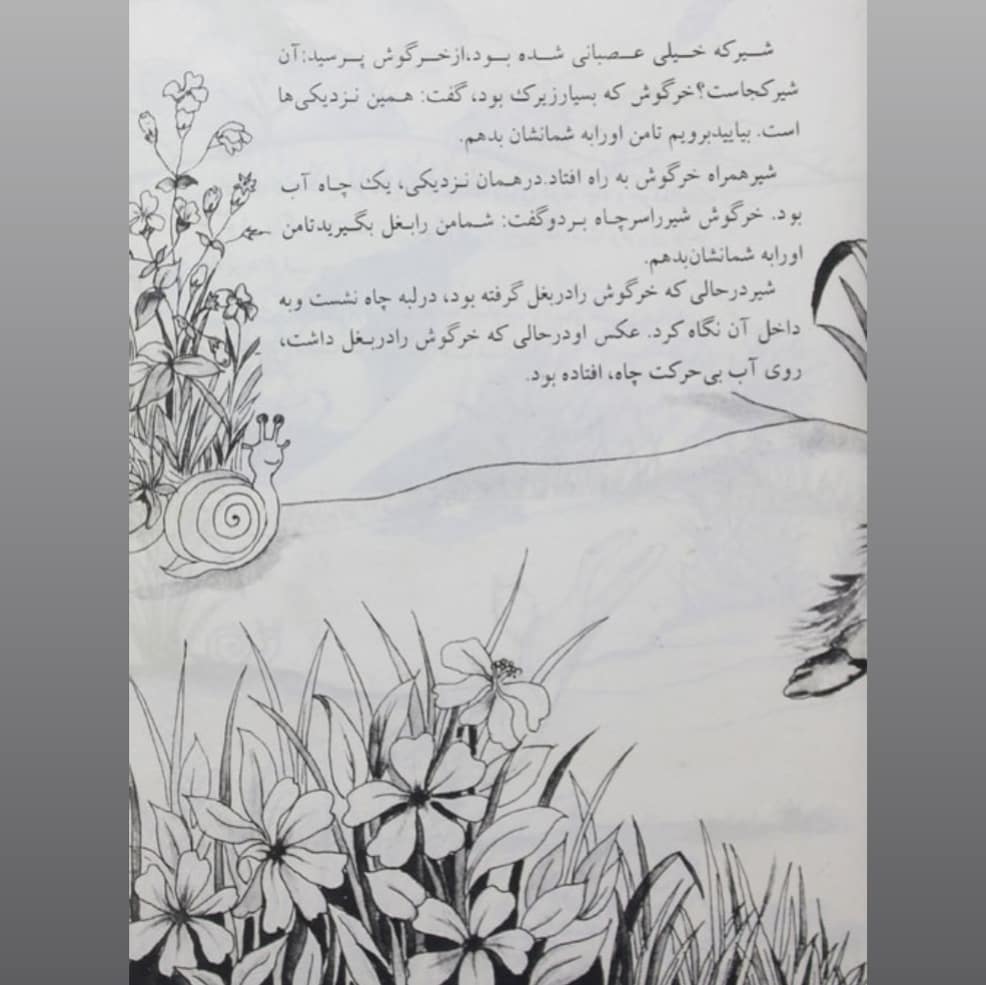 شیرکه خیلی عصبانی شده بود،ازخرگوش پرسید:آن
شیرکجاست؟خرگوش که بسیارزیرک بود، گفت: همین نزدیکی‌ها
است. بیاییدبرویم تامن اورابه شمانشان بدهم.
شیرهمراه خرگوش به راه افتاد.درهمان نزدیکی، یک چاه آب
بود. خرگوش شیرراسرچاه بردوگفت: شمامن رابغل بگیریدتامن
اورابه شمانشان‌بدهم.
شیردرحالی که خرگوش رادربغل گرفته بود، درلبه چاه نشست وبه
داخل آن نگاه کرد. عکس اودرحالی که خرگوش رادربغل داشت،
روی آب بی‌حرکت چاه، افتاده بود.